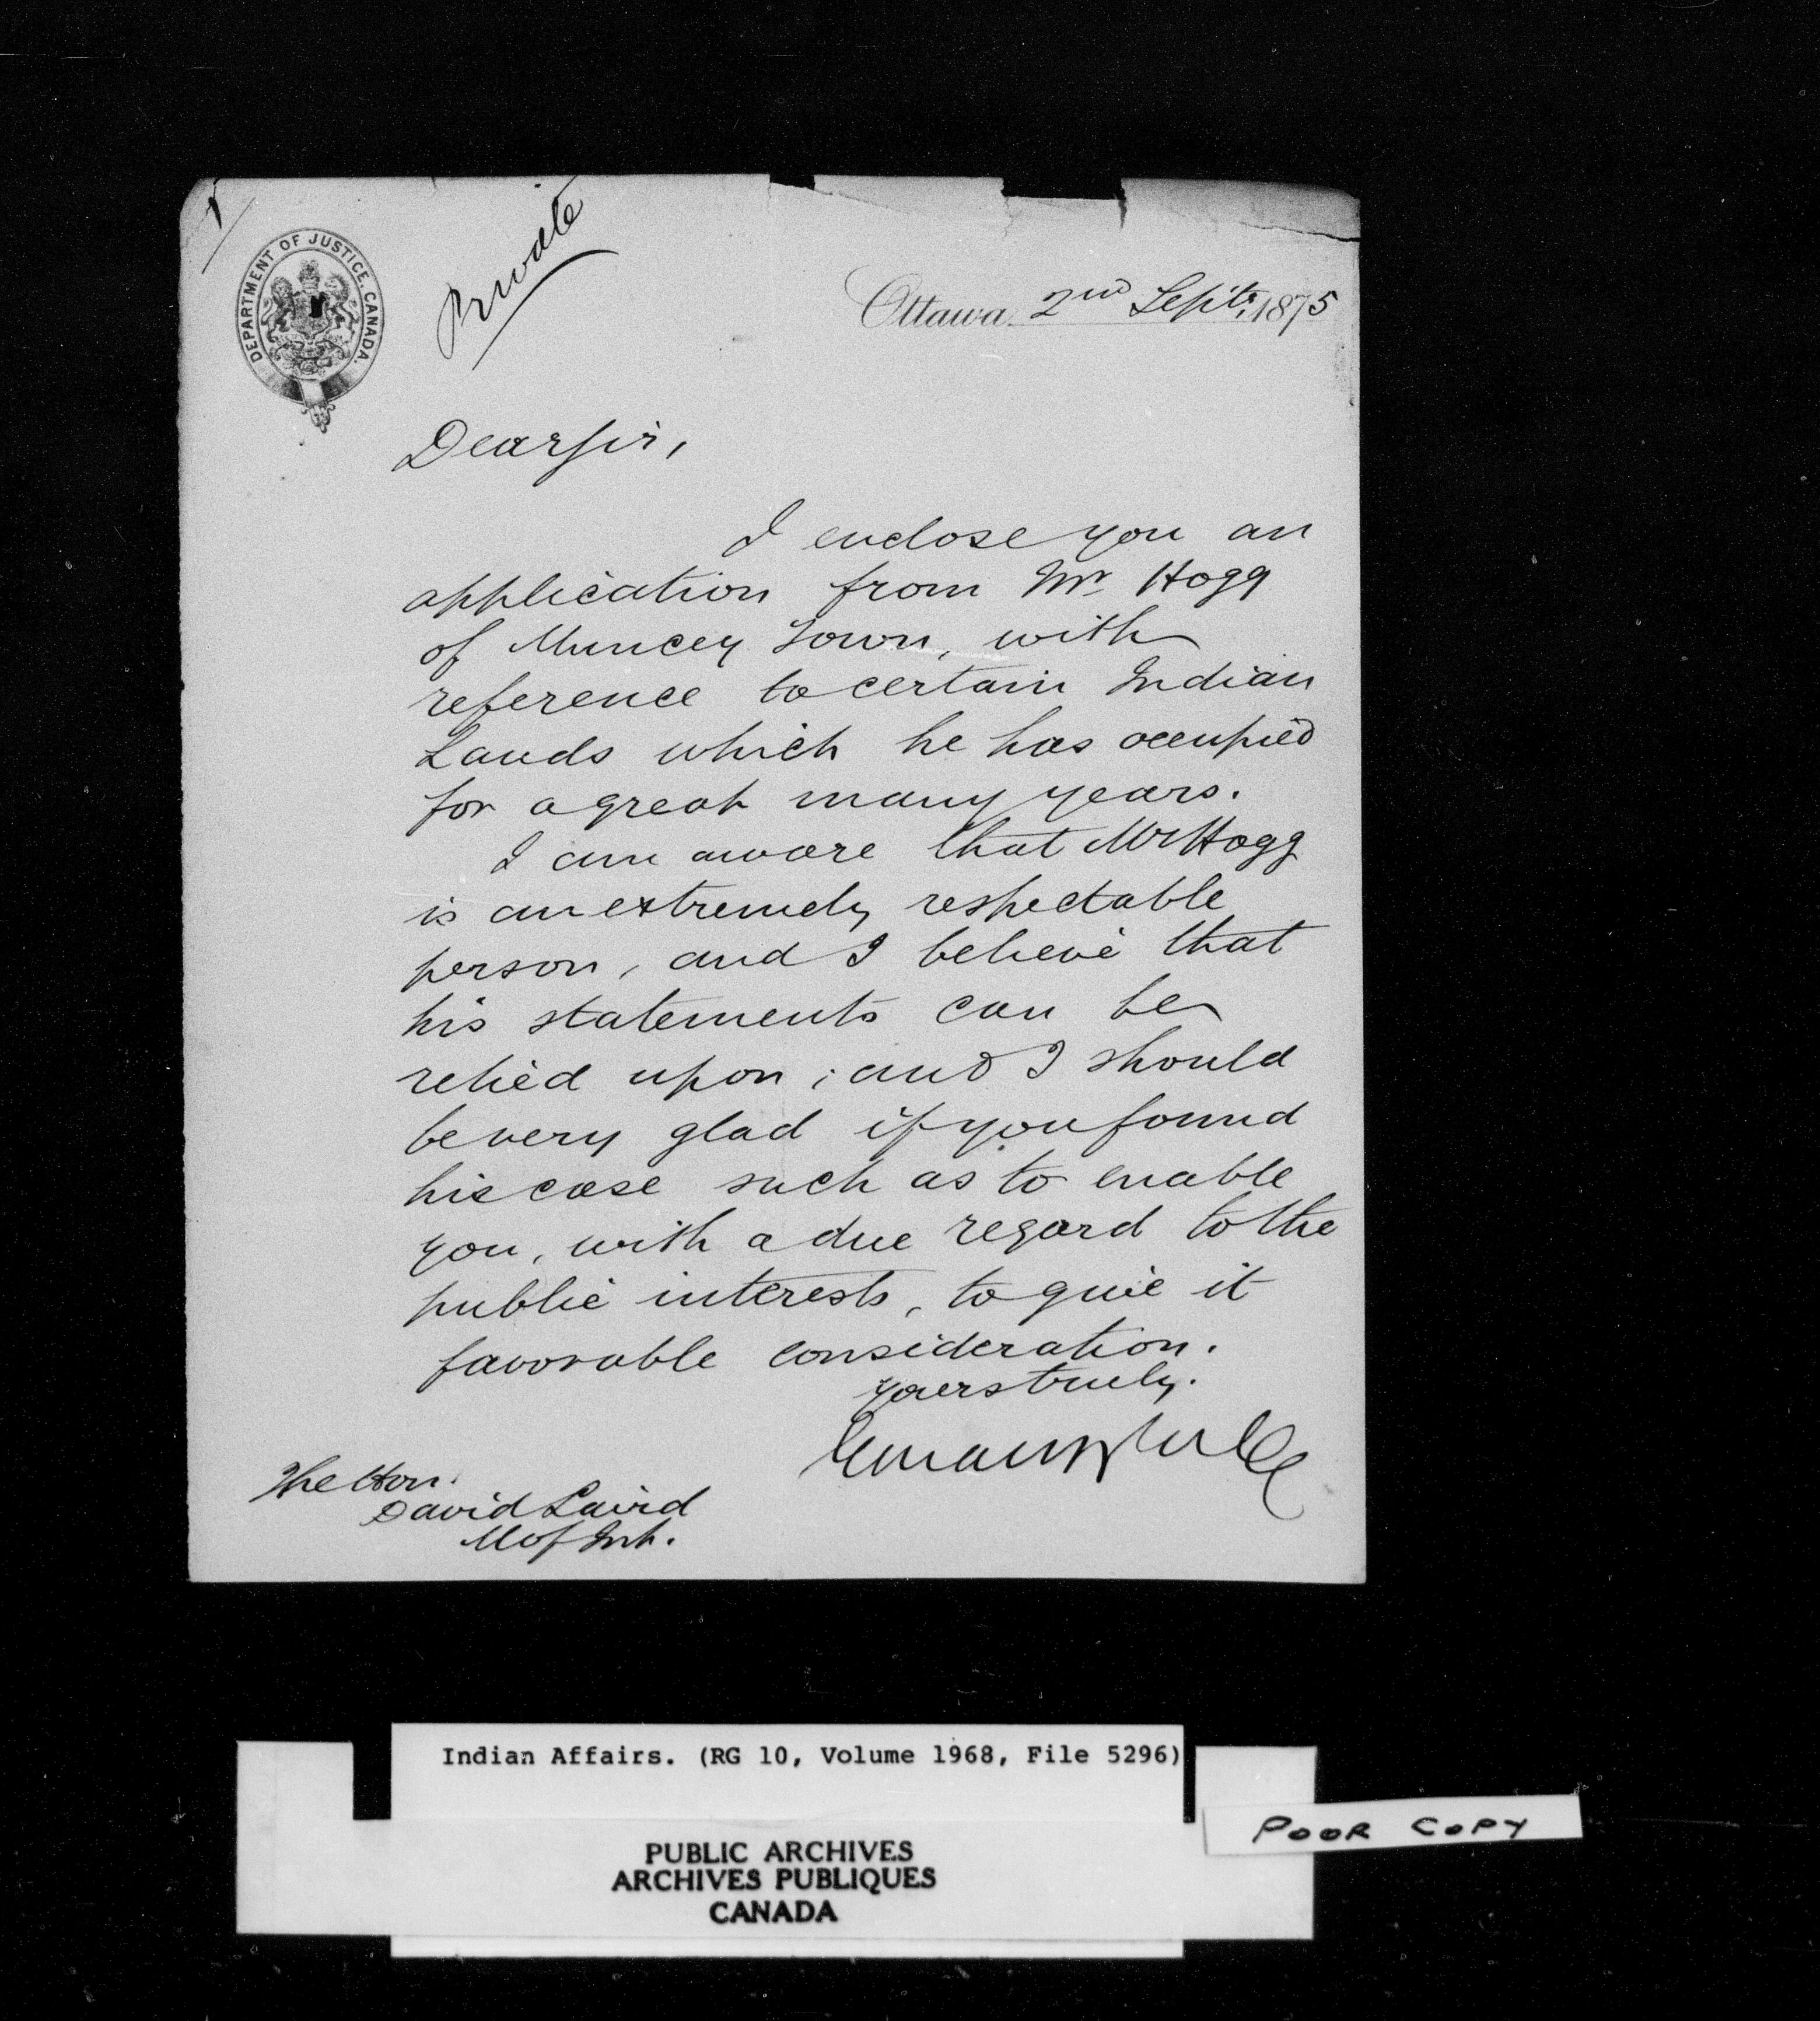 DEPARTMENT OF JUSTICE, CANADA.
Private
Ottawa 2nd Sept. 1875
Dear Sir,
I enclose you an
application from Mr Hogg
of Muncey Town, with
reference to certain Indian
Lands which he has occupied
for a great many years.
I am aware that Mr Hogg
is an extremely respectable
person, and I believe that
his statements can be
relied upon; and I should
be very glad if you found
his case such as to enable
you, with a due regard to the
public interests, to give it
favorable consideration.
Yours truly.
The Hon.
David Laird
M of Int.
Indian Affairs. (RG 10, Volume 1968, File 5296)
PUBLIC ARCHIVES
ARCHIVES PUBLIQUES
CANADA
POOR COPY